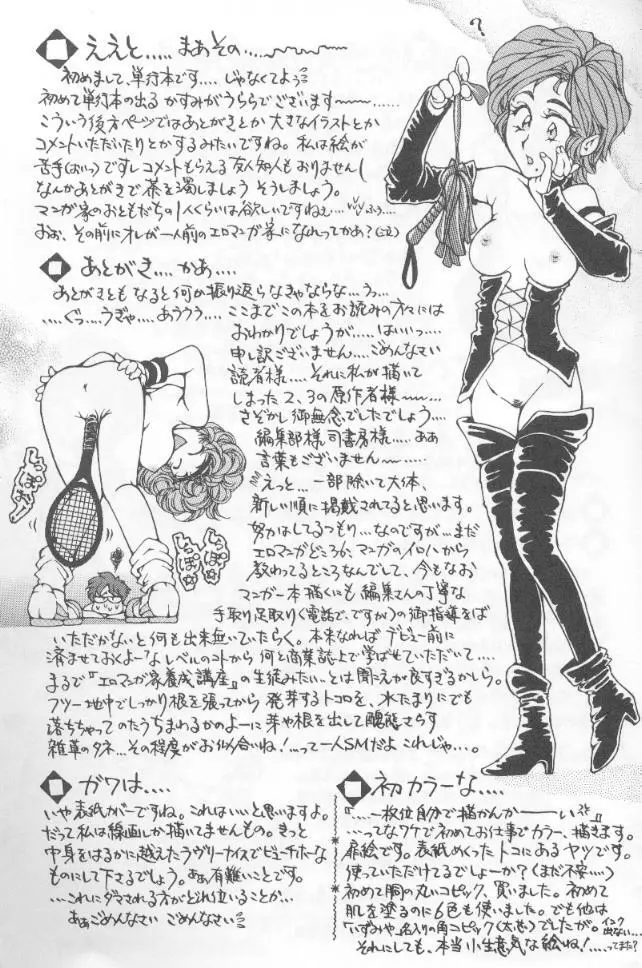 ええと..... まぁその.....
初めまして、単行本です.... じゃなくてよぅ
初めて単行本の出る かすみがうららでございます......
こういう後方ページではあとがきとか 大きなイラストとか
コメントいただいたりとかするみたいですね。私は絵が
苦手(おいっ)ですしコメントもらえる友人知人もおりませんし
なんかあとがきで茶を濁しましょう そうしましょう。
マンガ家のおともだちの1人くらいは欲しいですねぇ...
おお、その前にオレが一人前のエロマンガ家になれってかぁ?(泣)
?
あとがき.... かぁ....
あとがきとも なると何か振り返らなきゃならな...うっ...
....ぐっ....うぎゃ....あううう.... ここまでこの本をお読みの方々には
おわかりでしょうが.....はいいっ....
申し訳ございません.... ごめんなさい
読者様.... それに私が描いて
しまった2、3の原作者様....
さぞかし御無念でしたでしょう....
編集部様、司書房様..... ああ
言葉もございません.....
えっと... 一部除いて大体、
新しい順に掲載されてると思います。
努力はしてるつもり...なのですが...まだ
エロマンガどころか、マンガのイロハから
教わってるところなんでして、今もなお
マンガ一本描くにも 編集さんの丁寧な
手取り足取り(電話で、ですが)の御指導をば
いただかないと何も出来無いていたらく。本来なればデビュー前に
済ませておくよーな レベルのコトから 何と商業誌上で学ばせていただいて....
まるで『エロマンガ家養成講座』の生徒みたい...とは聞こえが良すぎるかしら。
フツー地中でしっかり根を張ってから 発芽するトコロを、水たまりにでも
落ちちゃって のたうちまわるかのよーに芽や根を出して醜態さらす
雑草のタネ...その程度がお似合いね!...って一人SMだよ これじゃ...。
ガワは....
いや表紙カバーですね。これはいいと思いますよ。
だって私は線画しか描いてませんもの。きっと
中身をはるかに越えたラヴリーナイスでビューチホーな
ものにして下さるでしょう。ああ有難いことです。
...これにダマされる方がどれ位いることか...
ああごめんなさい ごめんなさい
初カラーな....
『....一枚位自分で描かんかーーい』
....ってなワケで初めてお仕事でカラー、描きます。
扉絵です。表紙めくったトコにあるヤツです。
使っていただけてるでしょーか?(まだ不安....)
初めて胴の丸いコピック、買いました。初めて
肌を塗るのに6色も使いました。でも他は
「いずみや」名入りの角コピック(太芯)でしたが。インク出ない...
それにしても、本当小生意気な絵ね!....ってまた?